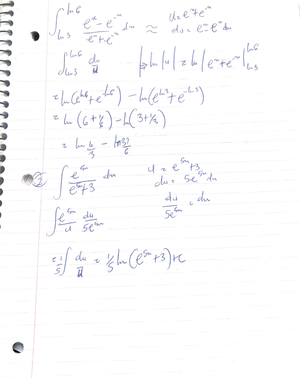 ∫_{ln3}^{ln6} (e^x - e^{-x})/(e^x + e^{-x}) dx    u = e^x + e^{-x}
du = e^x - e^{-x} dx
∫_{ln3}^{ln6} du/u    ln|u| = ln|e^x + e^{-x}| |_{ln3}^{ln6}
= ln(e^{ln6} + e^{-ln6}) - ln(e^{ln3} + e^{-ln3})
= ln(6 + 1/6) - ln(3 + 1/3)
= ln
∫ e^{5x}/(e^{5x}+3) dx    u = e^{5x}+3
du = 5e^{5x} dx
∫ e^{5x}/u du/5e^{5x}    du/5e^{5x} = dx
= 1/5 ∫ du/u = 1/5 ln(e^{5x}+3)+c